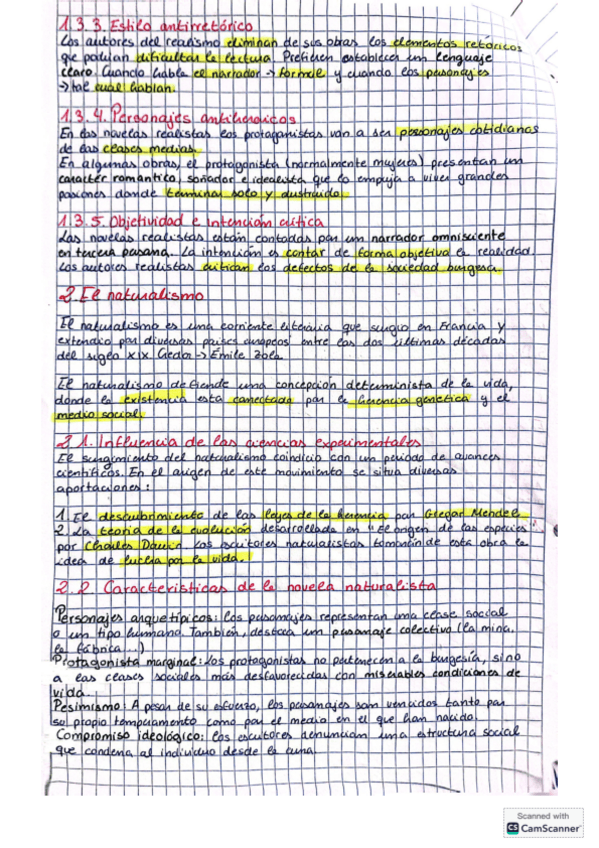 1.3.3. Estilo antirretórico
Los autores del realismo eliminan de sus obras los elementos retóricos
que podrían dificultar la lectura. Prefieren establecer un lenguaje
claro. Cuando habla el narrador → formal y cuando los personajes
→ tal cual hablan.
1.3.4. Personajes antiheroicos
En las novelas realistas los protagonistas van a ser personajes cotidianos
de las clases medias.
En algunas obras, el protagonista (normalmente mujeres) presentan un
carácter romántico, soñador e idealista que lo empuja a vivir grandes
pasiones donde terminan solo y destruido.
1.3.5. Objetividad e intención crítica
Las novelas realistas están contadas por un narrador omnisciente
en tercera persona. La intención es contar de forma objetiva la realidad.
Los autores realistas critican los defectos de la sociedad burgesa.
2. El naturalismo
El naturalismo es una corriente literaria que surgio en Francia y
extendio por diversos países europeos entre las dos últimas décadas
del siglo XIX. Creador → Émile Zola.
El naturalismo defiende una concepción determinista de la vida,
donde la existencia está conectado por la herencia genética y el
medio social.
2.1. Influencia de las ciencias experimentales
El surgimiento del naturalismo coincidio con un periodo de avances
científicos. En el origen de este movimiento se situa diversas
aportaciones:
1. El descubrimiento de las leyes de la herencia por Gregor Mendel.
2. La teoria de la evolución desarrollada en "El origen de las especies"
por Charles Darwin. Los escritores naturalistas tomarán de esta obra la
idea de lucha por la vida.
2.2. Características de la novela naturalista
Personajes arquetípicos: los personajes representan una clase social
o un tipo humano. También, destaca un personaje colectivo (la mina,
la fábrica...)
Protagonista marginal: los protagonistas no pertenecen a la burgesía, sino
a las clases sociales más desfavorecidas con miserables condiciones de
vida.
Pesimismo: A pesar de su esfuerzo, los personajes son vencidos tanto por
su propio temperamento como por el medio en el que han nacido.
Compromiso ideológico: los escritores denuncian una estructura social
que condena al individuo desde la cuna.
Scanned with
CS CamScanner